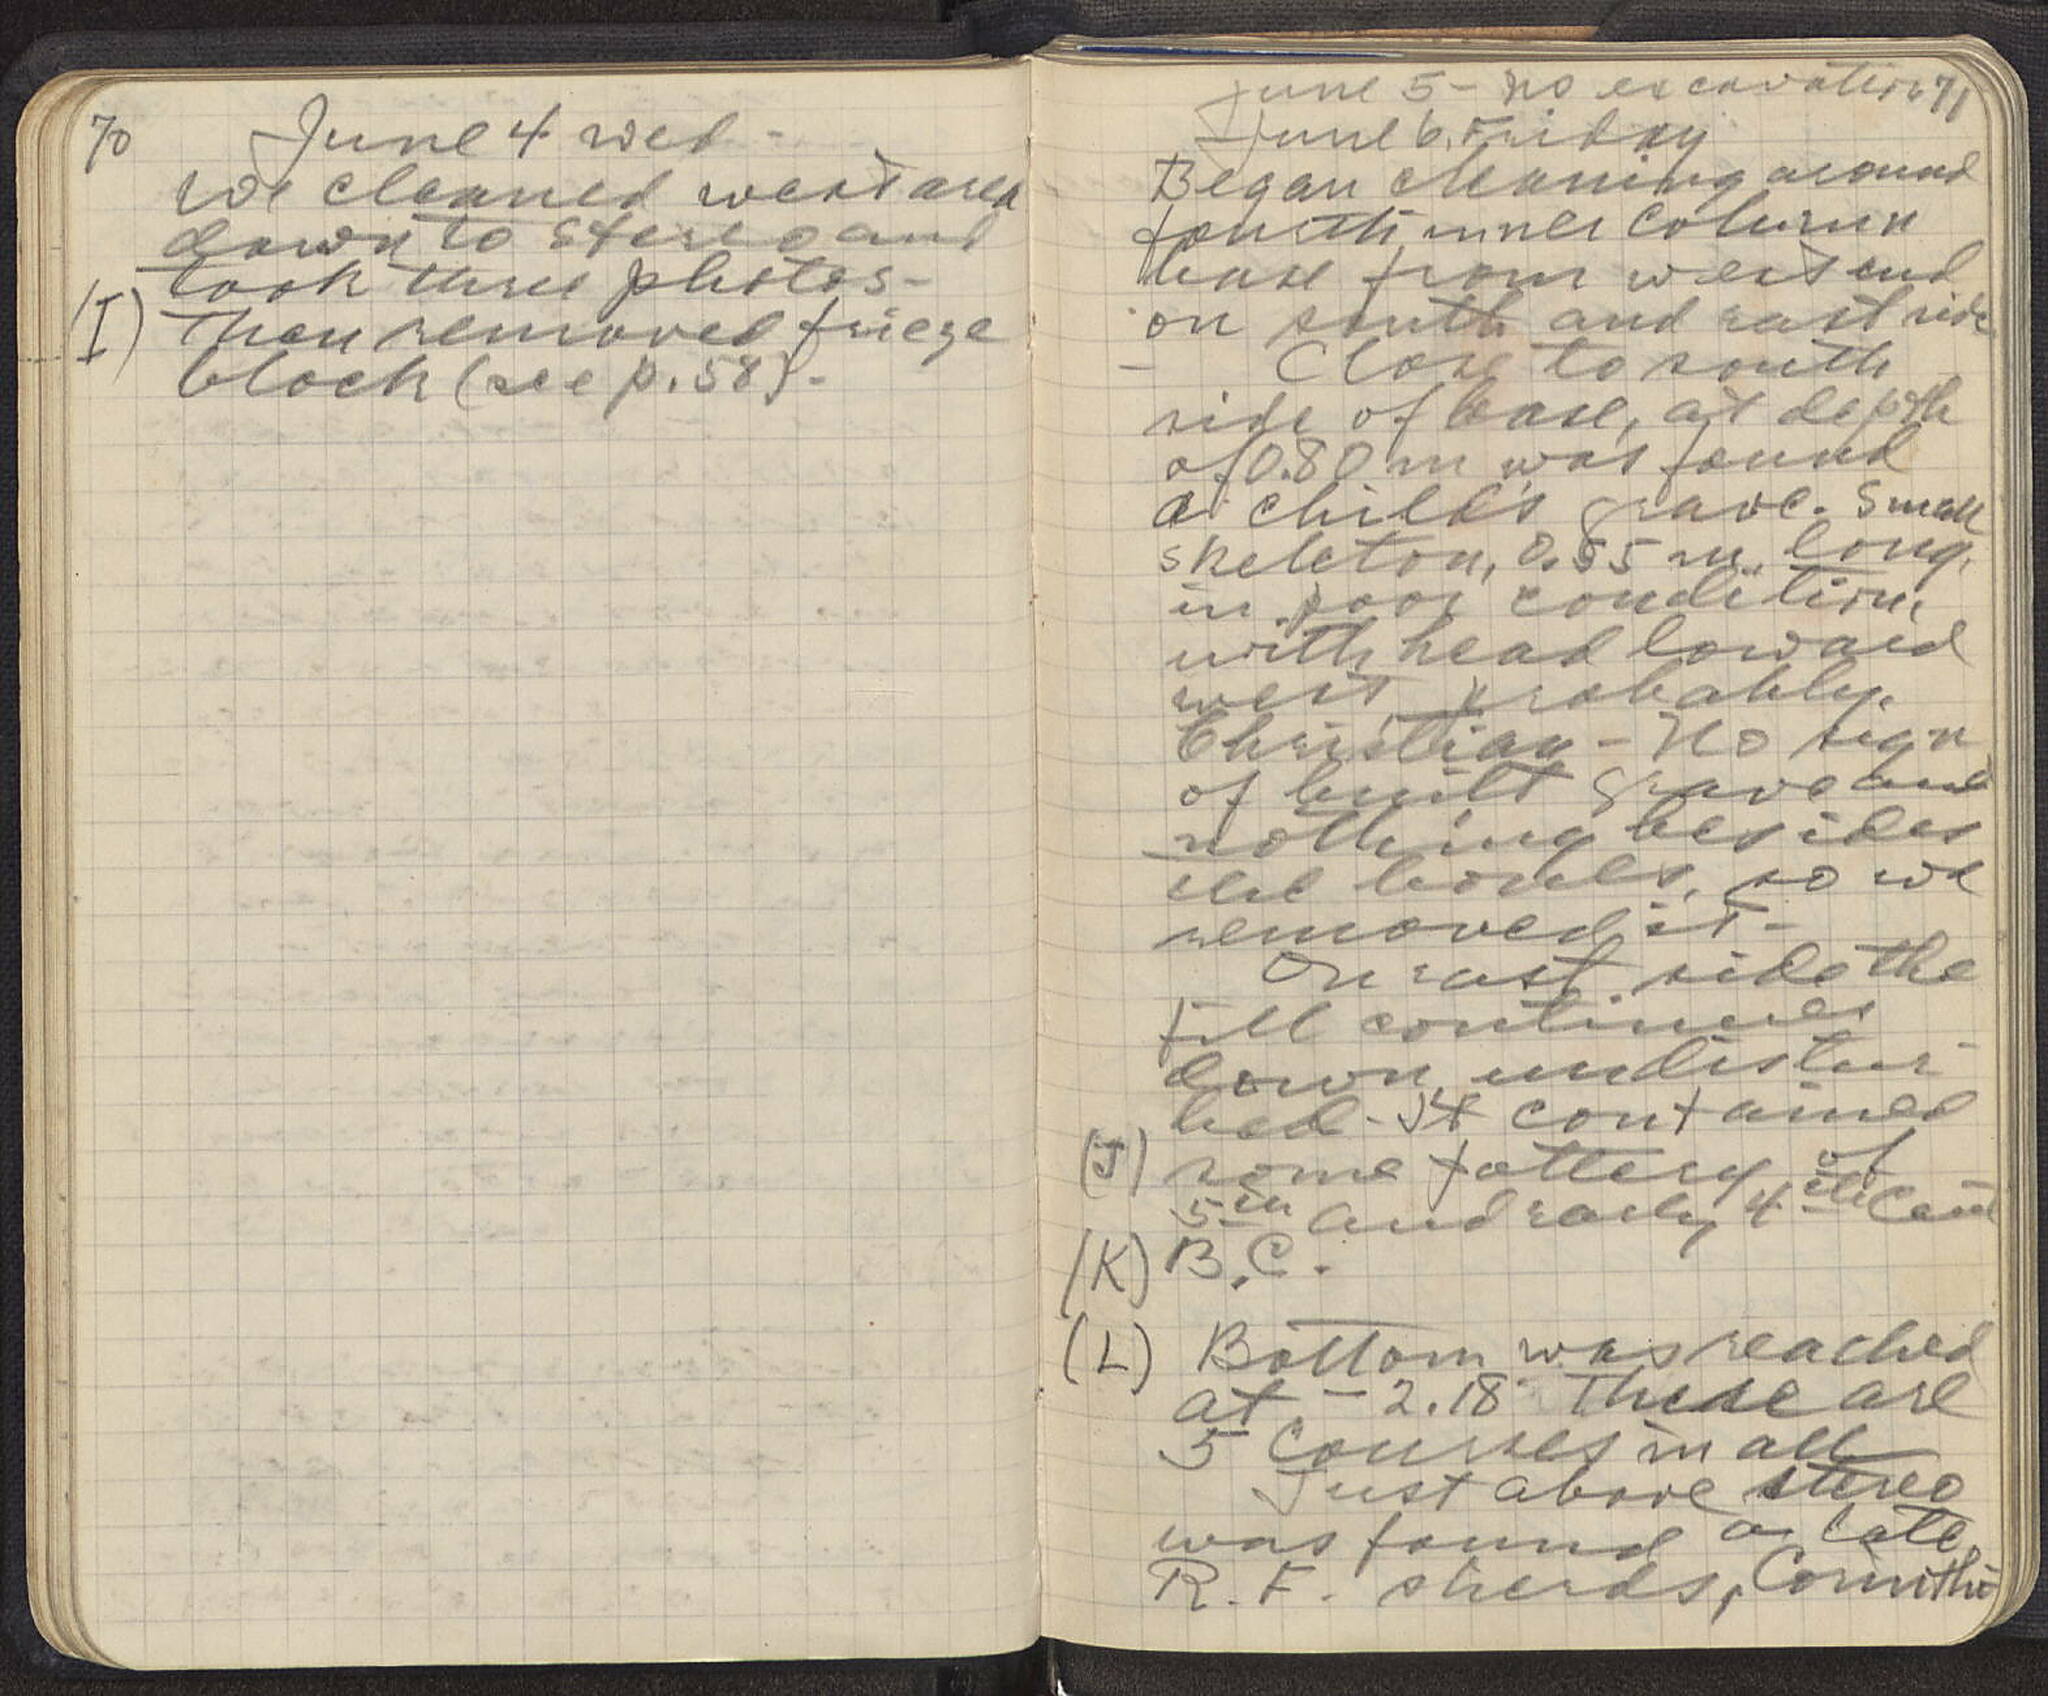 70
June 4 Wed -
We cleaned west area
down to stereo and
took three photos -
(I) Then removed frieze
block (see p. 58). -
June 5 - No excavation 71
June 6. Friday
Began cleaning around
fourth inner column
base from west end
on south and east side
- Close to south
side of base, at depth
of 0.80 m was found
a child's grave. Small
skeleton, 0.55 m. long,
in poor condition,
with head toward
west, probably
Christian - No sign
of built grave and
nothing besides
the bones, so we
removed it -
On east side the
fill continues
down undistur-
bed - It contained
(J) some pottery of
5th and early 4th Cent
(K) B.C.
(L) Bottom was reached
at - 2.18 There are
5 courses in all
Just above stereo
was found a late
R. F. sherds, Corinthi